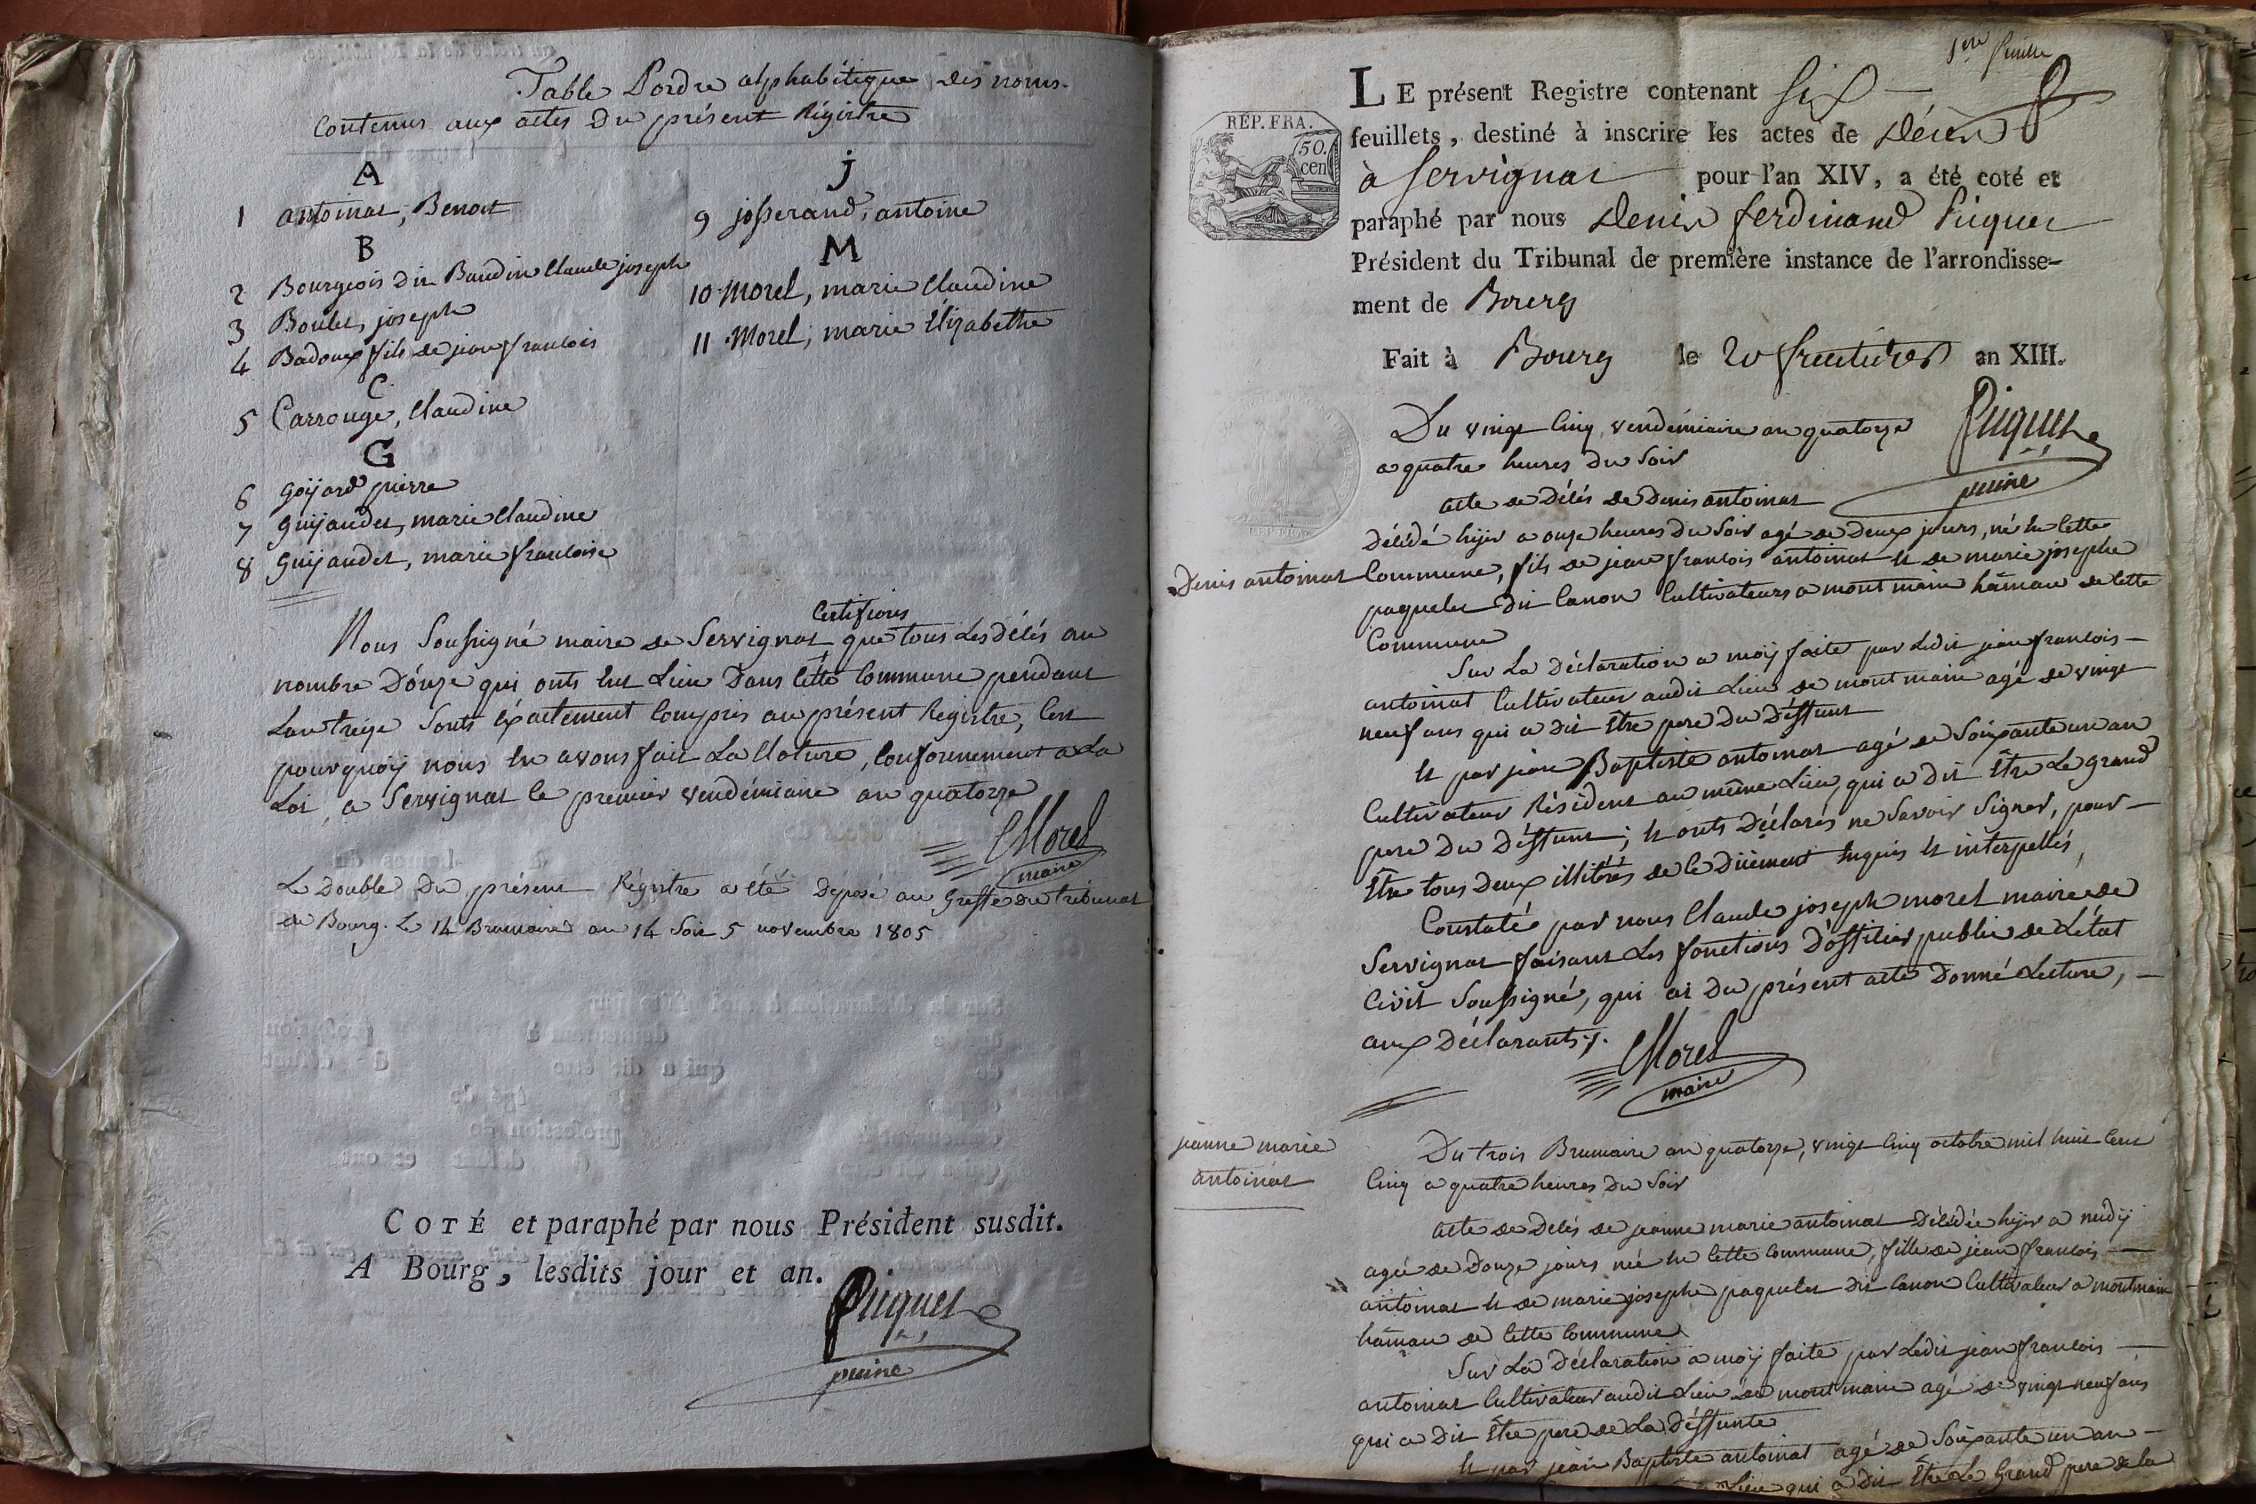 Table d'ordre alphabétique des noms
Contenus aux actes du présent Régistre
A
1 antoinat, Benoit
B
2 Bourgeois dit Baudin Claude joseph
3 Boulet, joseph
4 Badoux fils de jean francois
C
5 Carrouge, Claudine
G
6 goÿard pierre
7 guÿaudet, marie Claudine
8 guÿaudet, marie francoise
J
9 josserand, antoine
M
10 Morel, marie Claudine
11 Morel, marie Elizabethe
Certifions
Nous Soussigné maire de Servignat que tous Les déces au
nombre D'onze qui onts eut Lieu Dans cette Commune pendant
L'an treize Sonts éxactement Compris au présent Registre, C'est
pourquoÿ nous en avons fait La Cloture, Conformement a La
Loi, a Servignat le premier vendémiaire an quatorze
CMorel
maire
Le Double du présent Régistre a été déposé au Greffe du tribunal
de Bourg. Le 14 Brumaire an 14 Soit 5 novembre 1805
COTÉ et paraphé par nous Président susdit.
A Bourg, lesdits jour et an.
Picquet
puiné
1ere feuille
LE présent Registre contenant Six
feuillets, destiné à inscrire les actes de décès
à Servignat pour l'an XIV, a été coté et
paraphé par nous Denis ferdinand Picquet
Président du Tribunal de première instance de l'arrondisse-
ment de Bourg
Fait à Bourg le 20 fructidor an XIII.
REP. FRA.
50.
cen
Picquet
puiné
Du vingt Cinq vendémiaire an quatorze
a quatre heures du Soir
acte de Décès de Denis antoinat
Décédé hÿer a onze heures du Soir agé de Deux jours, né en Cette
Denis antoinat
Commune, fils de jean francois antoinat et de marie josephe
paquelet dit Canon Cultivateurs a montmain hâmau de Cette
Commune
Sur La Déclaration a moÿ faite par Ledit jean francois
antoinat Cultivateur audit Lieu de montmain agé de vingt
neuf ans qui a dit Etre pere du Deffunt
et par jean Baptiste antoinat agé de Soixante un an
Cultivateur Résident au même Lieu, qui a dit Etre Le grand
pere du Deffunt; et onts Déclarés ne Savoir Signer, pour
Etre tous Deux illitérés de ce Düement enquis et interpellés,
Constaté par nous Claude joseph morel maire de
Servignat faisant Les fonctions D'officier public de L'état
Civil Soussigné, qui ai du présent acte Donné Lecture,
aux Déclarants.
CMorel
maire
jeanne marie
antoinat
Du trois Brumaire an quatorze, vingt Cinq octobre mil huit Cent
Cinq a quatre heures du Soir
acte de Deces de jeanne marie antoinat Décédée hÿer a midÿ
agée de Douze jours née en Cette Commune, fille de jean francois
antoinat et de marie josephe paquelet dit Canon Cultivateur a montmain
hâmau de Cette Commune
Sur La Déclaration a moÿ faite par Ledit jean francois
antoinat Cultivateur audit Lieu de montmain agé de vingt neuf ans
qui a Dit Etre pere de La Deffunte
et par jean Baptiste antoinat agé de Soixante un an
Lieu qui a Dit Etre Le Grand pere de la